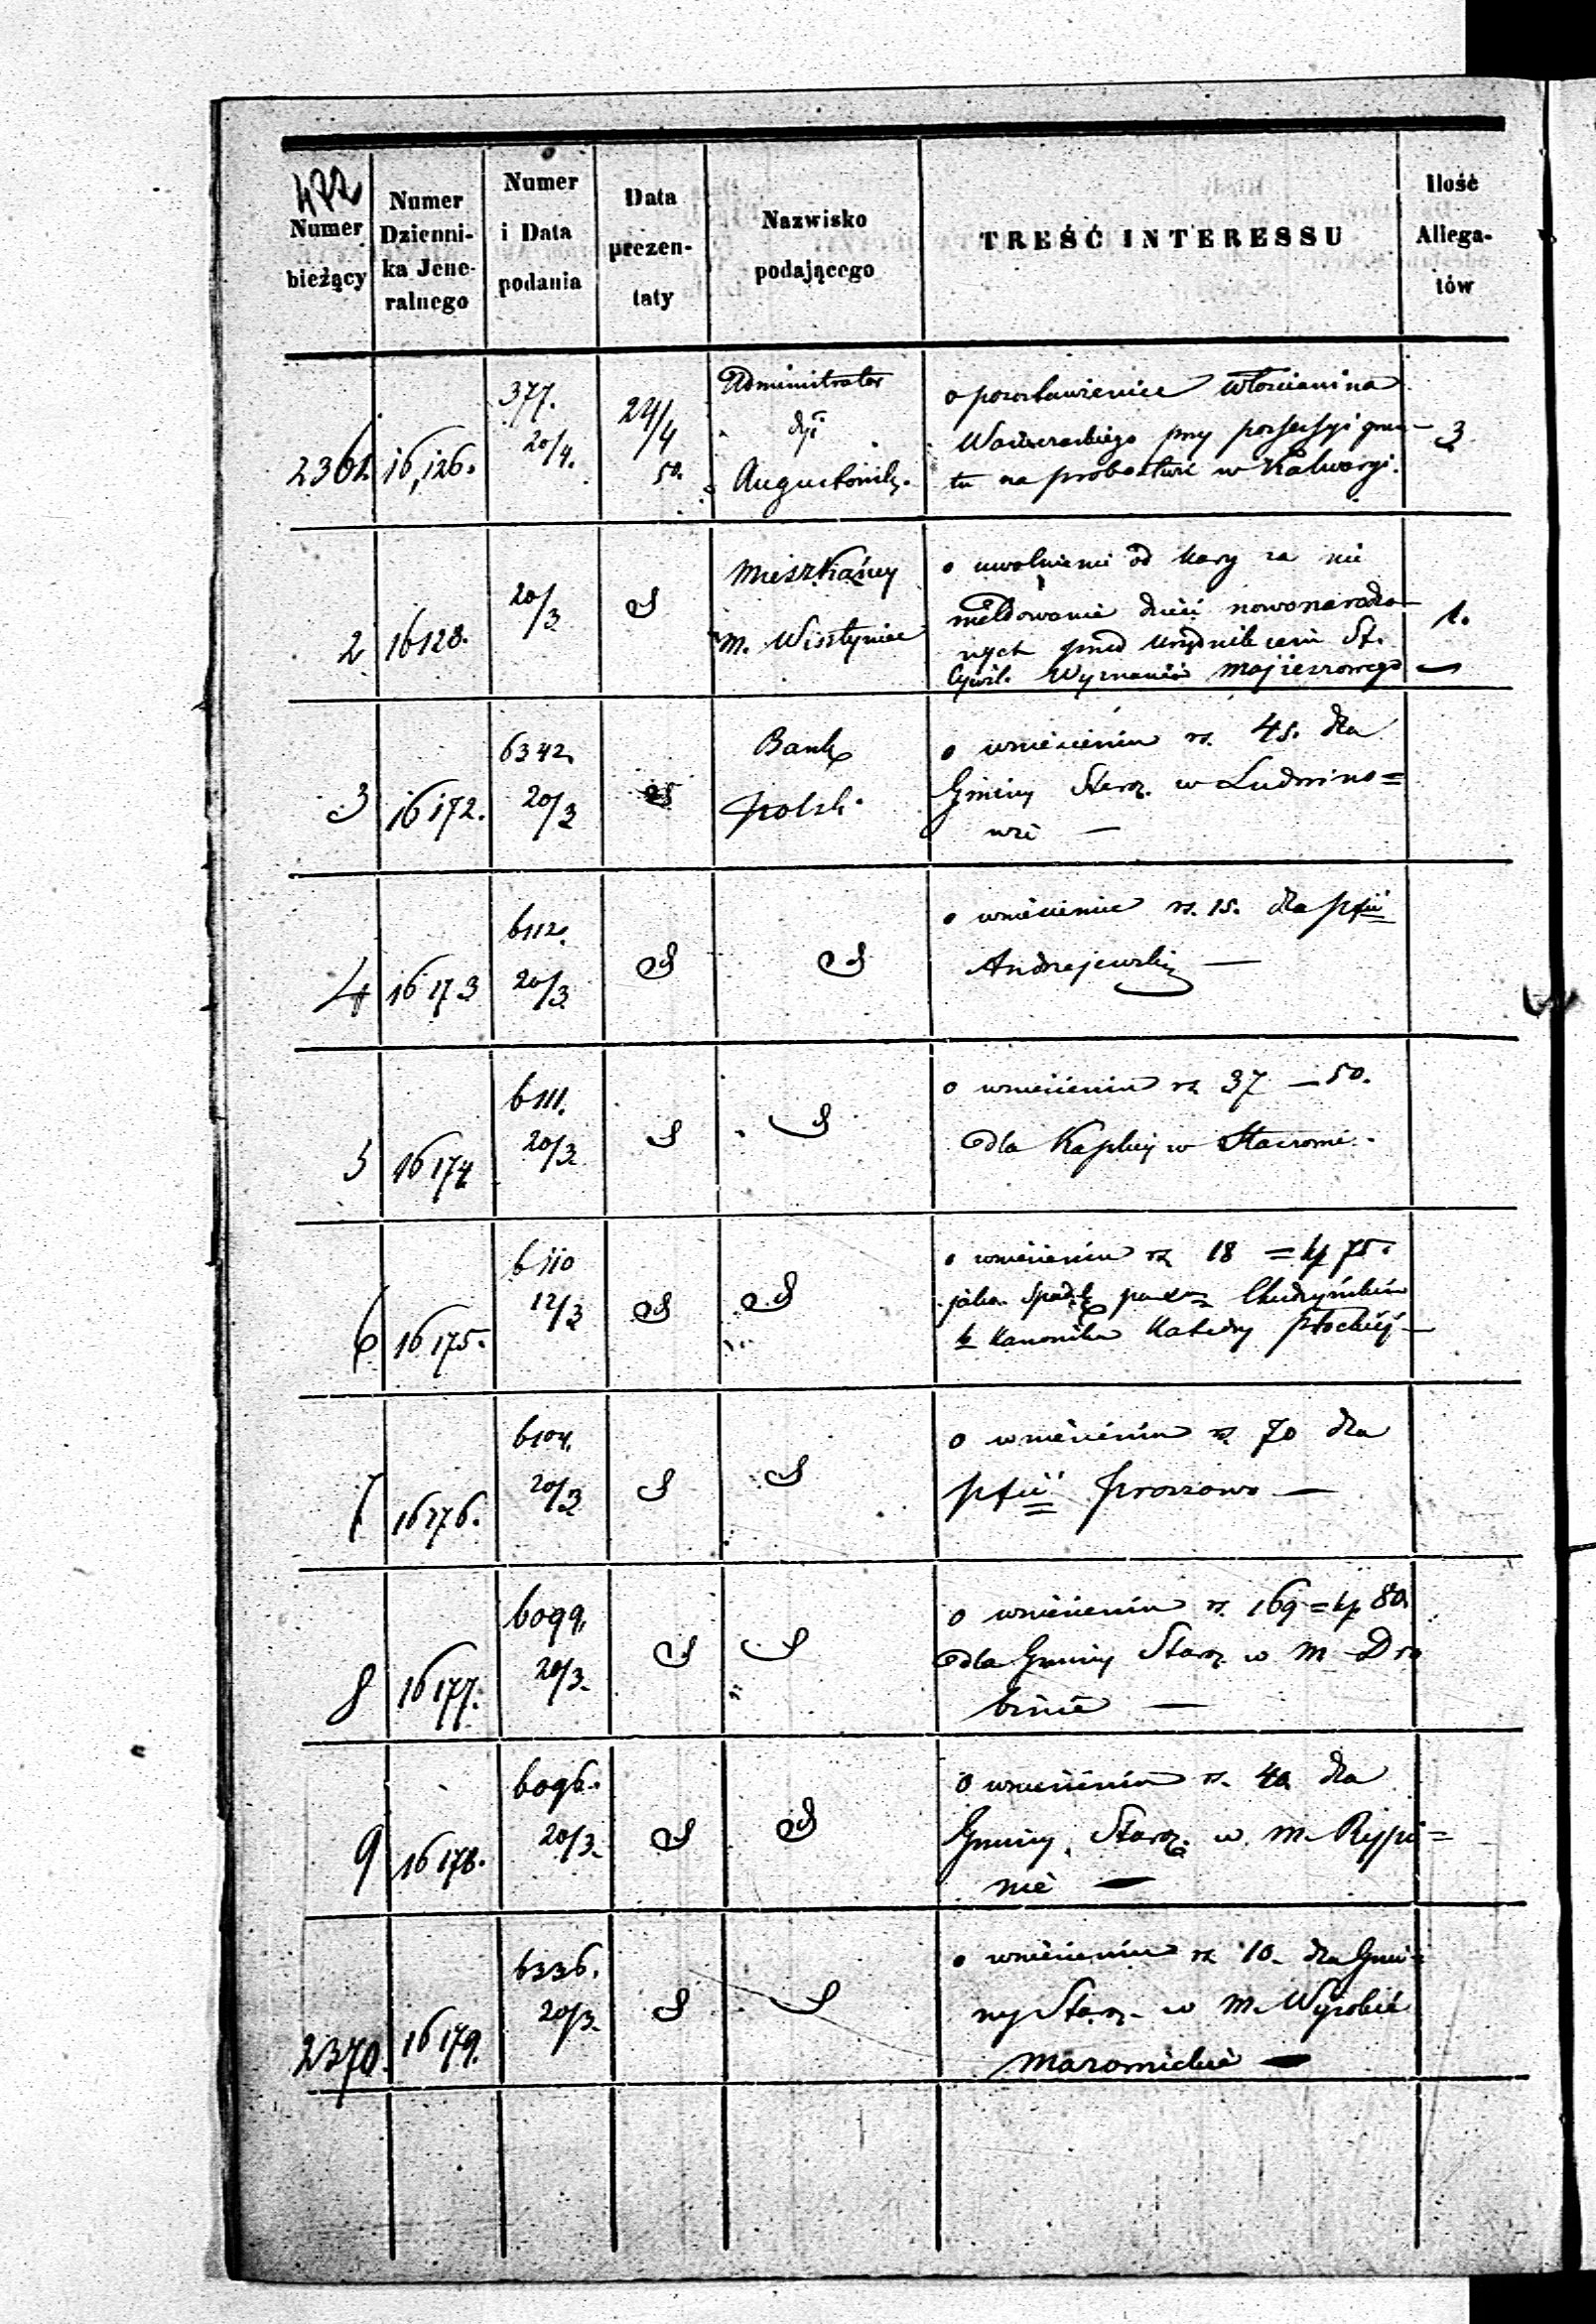 472
Numer bieżący
Numer Dzienni-ka Jene-ralnego
Numer i Data podania
Data prezen-taty
Nazwisko podającego
TREŚĆ INTERESSU
Ilość Allega-tów
2361. 16,126. 377. 20/4. 24/4 50. Administrator
dyi
Augustowsk.
o pozostawienie włościanina
przy possessyi grun-
tu na probostwie w Kalwaryi.
3
2 16128. 20/3 Mieszkańcy
m. Wisztyniec
o uwolnienie od kary za nie
meldowanie dzieci nowonarodzo-
nych przed Urzędnikiem St.
Cywil. Wyznania Mojżeszowego
1.
3 16172. 6342. 20/3 Bank
Polski
o wniesieniu rs. 45. dla
Gminy Staroz. w Ludwino=
wie —
4 16173 6112. 20/3
o wniesienie rs. 15. dla
Andrzejewski —
5 16174 6111. 20/3
o wniesieniu rs 37 — 50.
dla Kaplicy w
6 16175. 6110 12/3
o wniesieniu rs 18 = kp 75.
jako
Kanonika Katedry Płockiej —
7 16176. 6104. 20/3
o wniesieniu rs. 70 dla
8 16177. 6099. 20/3.
o wniesieniu rs. 169 = kp 80
dla Gminy Staroz w m Dro
binie —
9 16178. 6096. 20/3.
o wniesieniu rs. 40 dla
Gminy Staroz. w m. Rypi=
nie —
2370. 16179. 6336. 20/3.
o wniesieniu rs 10. dla Gmi=
ny Staroz. w m.
Mazowieckie —